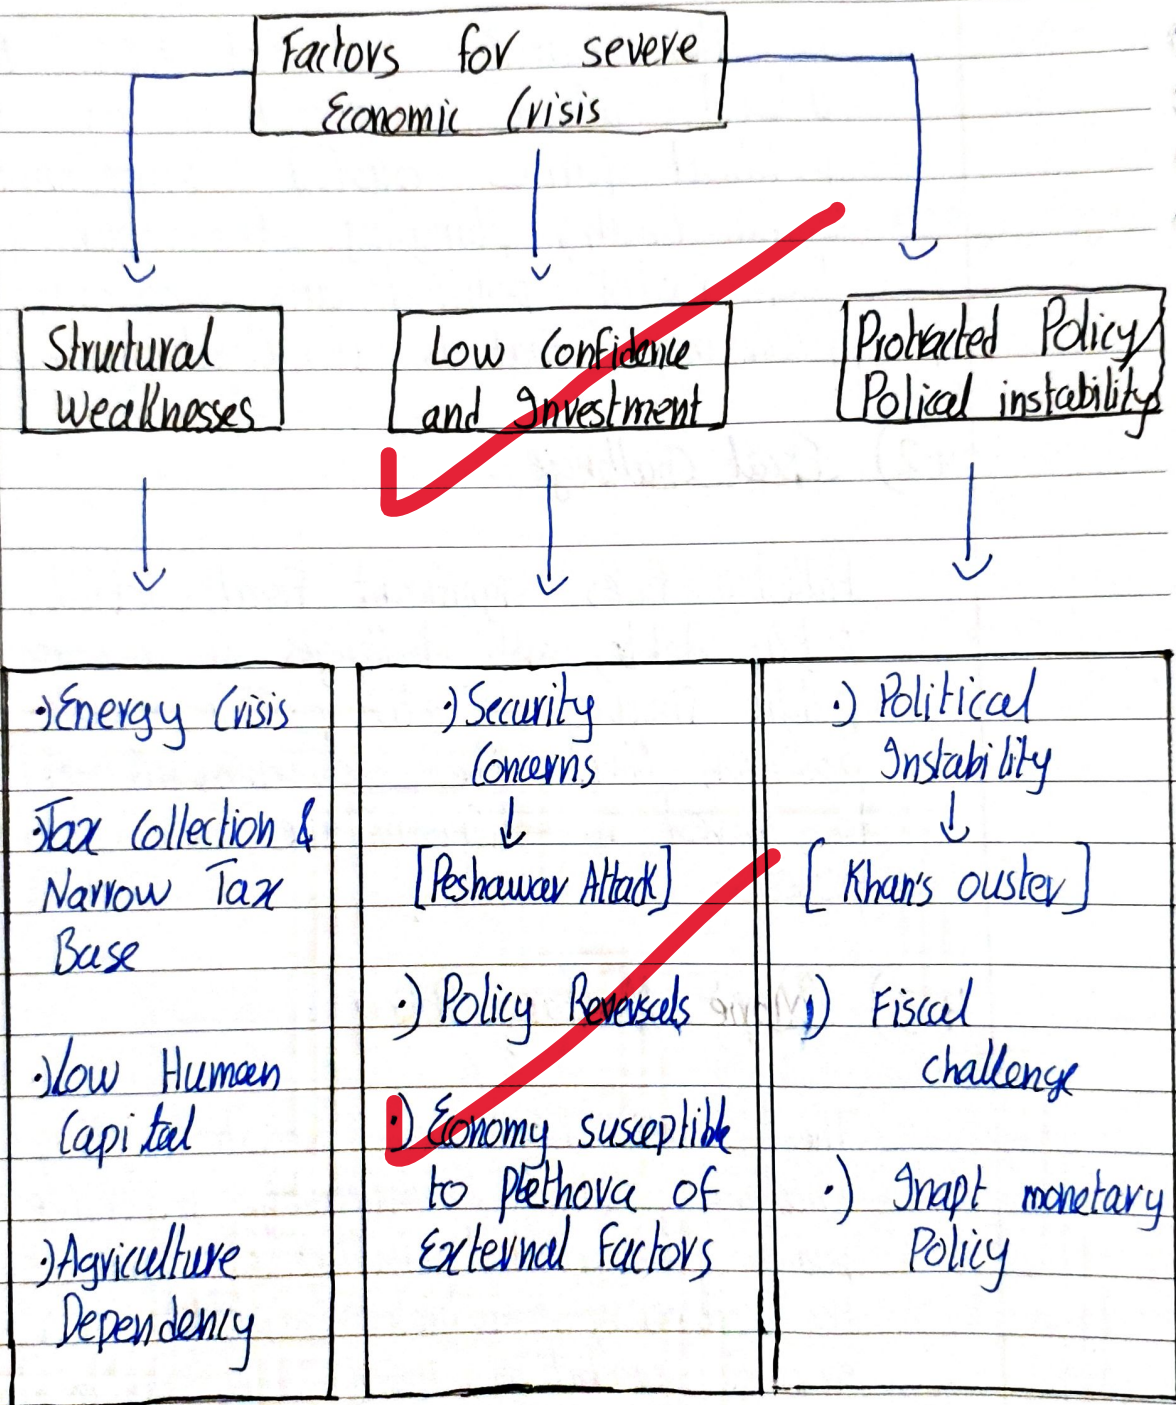 Factors for severe
Economic Crisis
Structural
Weaknesses
Low Confidence
and Investment
Protracted Policy/
Polical instability
·) Energy Crisis
·) Tax Collection &
Narrow Tax
Base
·) Low Human
Capital
·) Agriculture
Dependency
·) Security
Concerns
[Peshawar Attack]
·) Policy Reversals
·) Economy susceptible
to plethora of
External Factors
·) Political
Instability
[Khan's ouster]
·) Fiscal
challenge
·) Inapt monetary
Policy